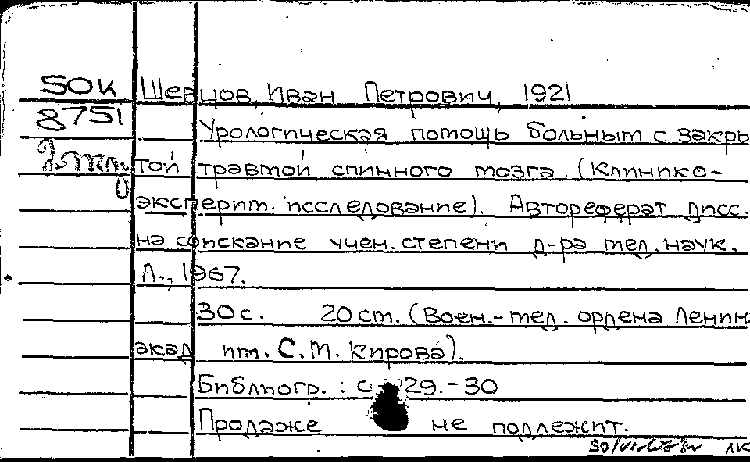 50К Шевцов, Иван Петрович, 1921
8751 Урологическая помощь больным с закры
той травмой спинного мозга (Клинико-
эксперим. исследование). Автореферат дисс.
на соискание учен. степени д-ра мед. наук.
Л., 1967.
30 с. 20 см. (Воен.-мед. ордена Ленин
акад им. С. М. Кирова).
Библиогр.: с 29.-30
Продаже не подлежит.